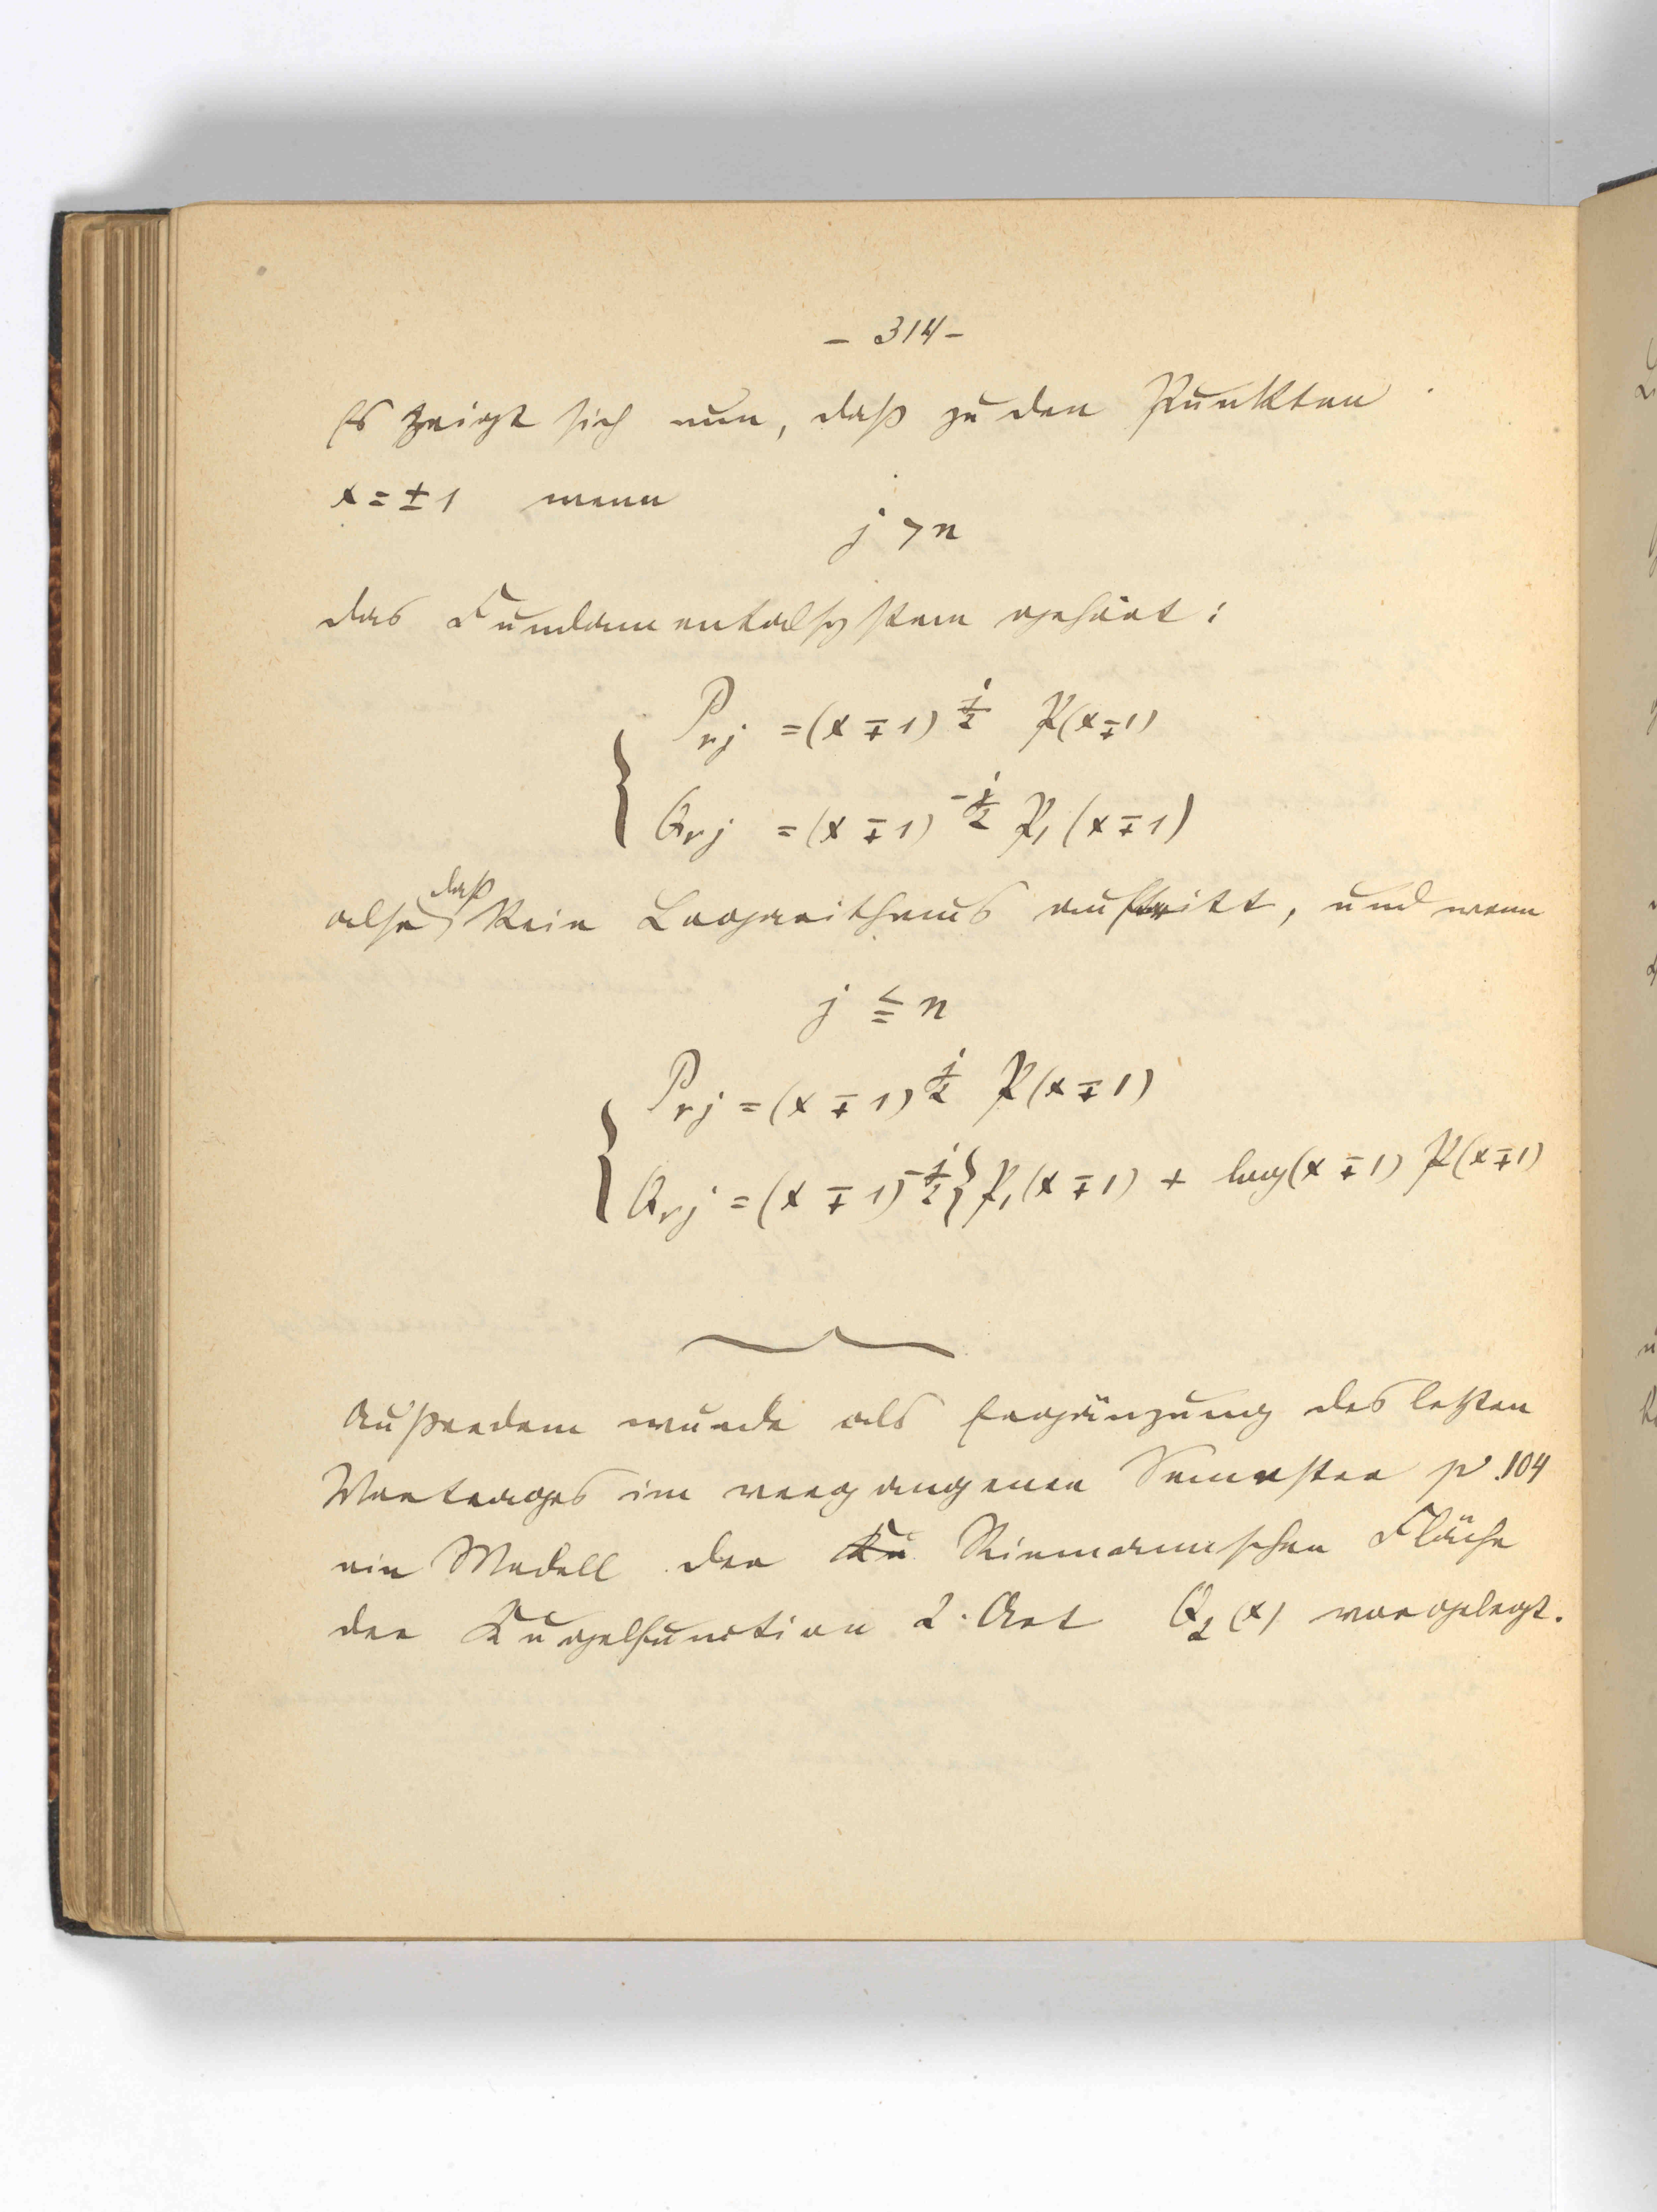 – 314 –
Es zeigt sich nun, daß zu den Punkten
x = ± 1 wenn
j > n
das Fundamentalsystem gehört:
P_{nj} = (x ∓ 1)^{j/2} P(x ∓ 1)
Q_{nj} = (x ∓ 1)^{-j/2} P_1 (x ∓ 1)
also daß kein Logarithmus auftritt, und wenn
j ≦ n
P_{nj} = (x ∓ 1)^{j/2} P(x ∓ 1)
Q_{nj} = (x ∓ 1)^{-j/2} } P_1 (x ∓ 1) + log(x ∓ 1) P(x ∓ 1)
Außerdem wurde als Ergänzung des letzten
Vortrages im vergangenen Semester p. 104
ein Modell der Ku Riemannschen Fläche
der Kugelfunction 2. Art Q_2 (x) vorgelegt.